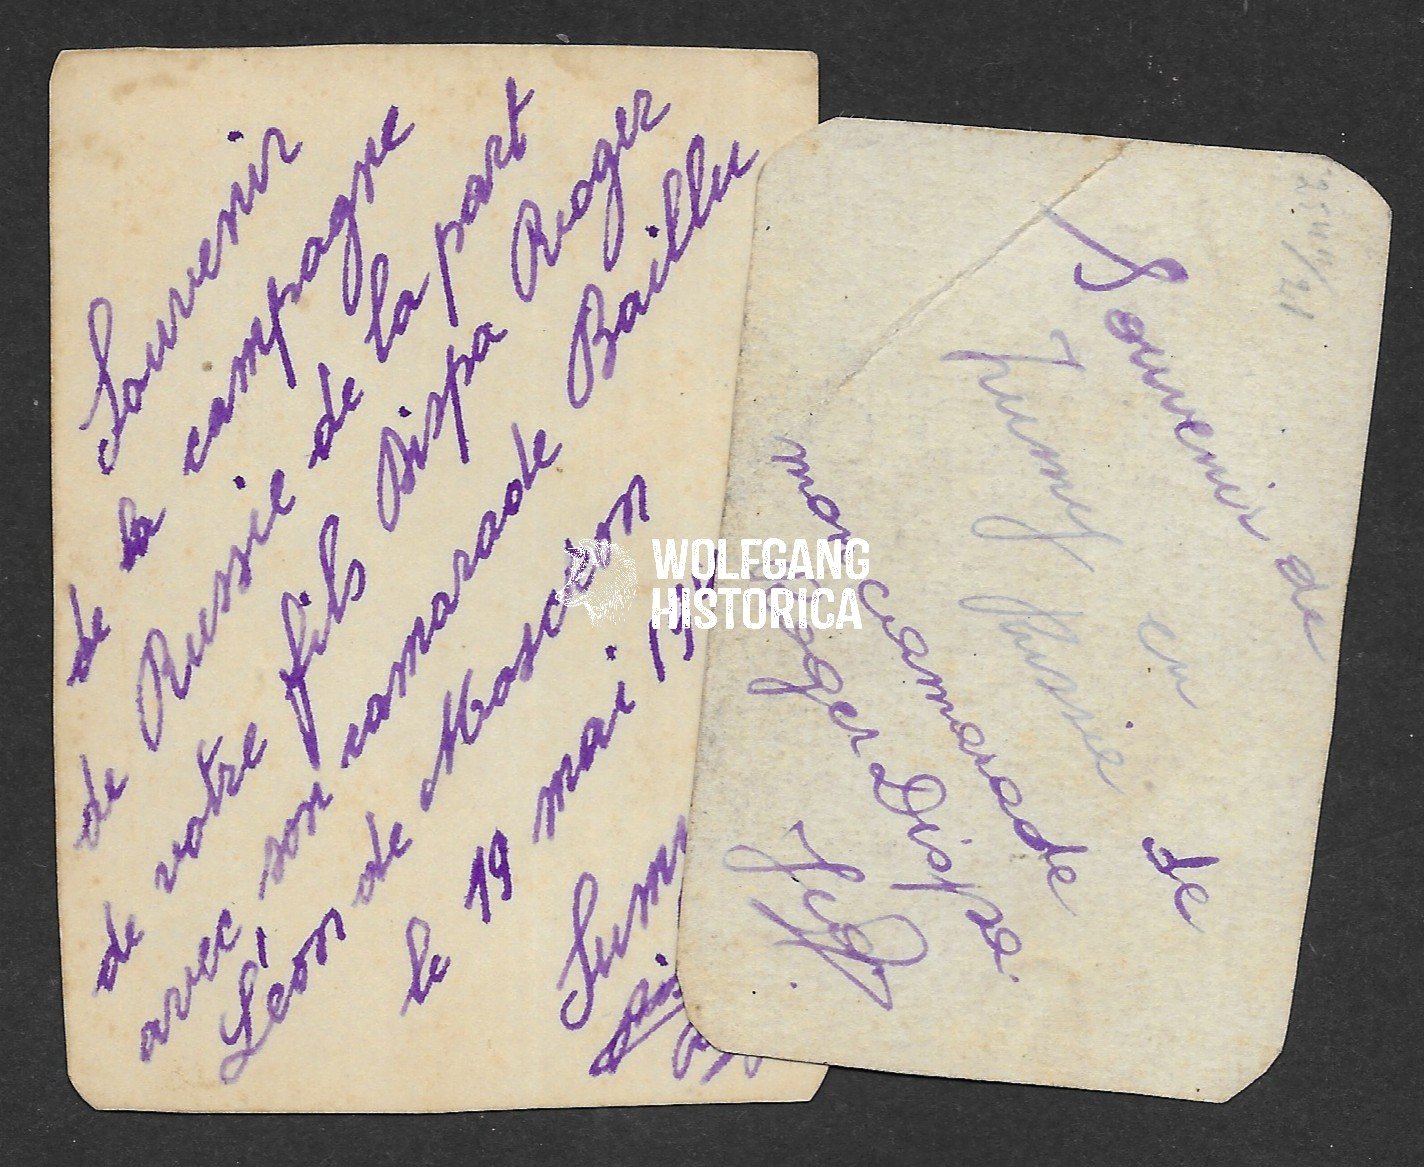 Souvenir
de la campagne
de Russie de la part
de votre fils Dispa Roger
avec son camarade Baillu
Léon de Mosceon
le 19 mai 19
Sum
Souvenir de
Sumy en
Russie de
mon camarade
Roger Dispa.
WOLFGANG
HISTORICA